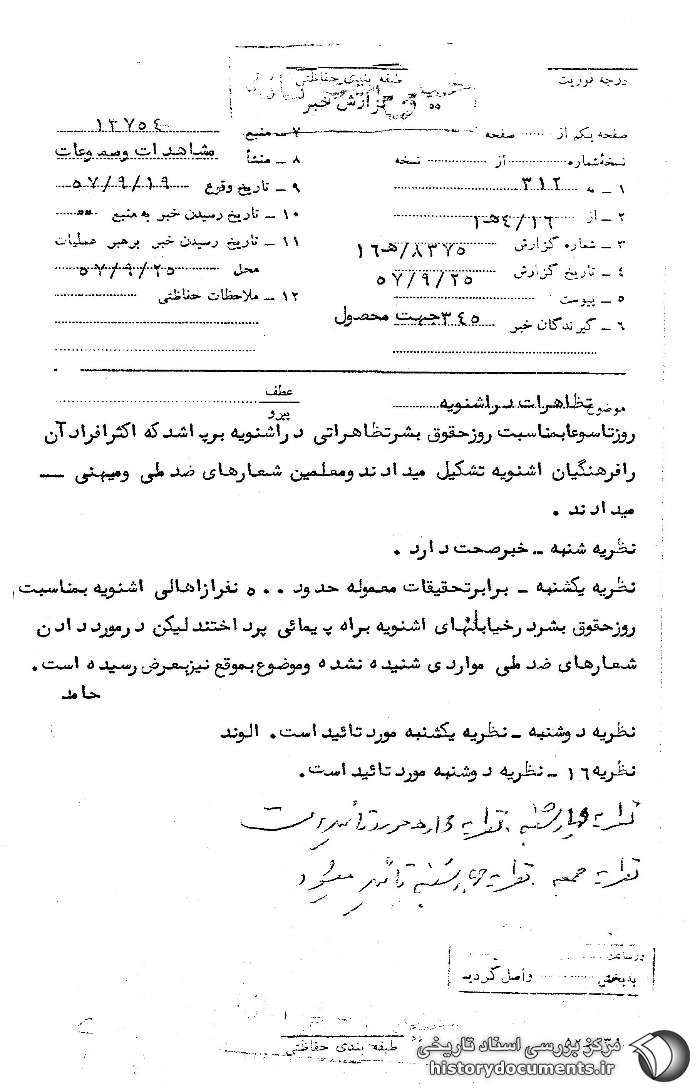 درجه فوریت
طبقه بندی حفاظتی
گزارش خبر
صفحه یکم از ........ صفحه
نسخهٔشماره ........ از ........ نسخه
۱ ـ به ۳۱۲
۲ ـ از ۱۶/۴هـ۱
۳ ـ شماره گزارش ۸۳۷۵/هـ۱۶
۴ ـ تاریخ گزارش ۵۷/۹/۲۵
۵ ـ پیوست
۶ ـ گیرندگان خبر ۳۴۵جهت محصول
۷ ـ منبع ۱۳۷۵۴
۸ ـ منشأ مشاهدات ومسموعات
۹ ـ تاریخ وقوع ۵۷/۹/۱۹
۱۰ ـ تاریخ رسیدن خبر به منبع ""
۱۱ ـ تاریخ رسیدن خبر برهبر عملیات
محل ۵۷/۹/۲۵
۱۲ ـ ملاحظات حفاظتی
موضوع تظاهرات دراشنویه
عطف
پیرو
روزتاسوعابمناسبت روزحقوق بشرتظاهراتی دراشنویه برپاشدکه اکثرافرادآن
رافرهنگیان اشنویه تشکیل میدادندومعلمین شعارهای ضدملی ومیهنی ــ
میدادند .
نظریه شنبه ـ خبرصحت دارد .
نظریه یکشنبه ـ برابرتحقیقات معموله حدود ۵۰۰ نفرازاهالی اشنویه بمناسبت
روزحقوق بشردرخیابانهای اشنویه براه پیمائی پرداختندلیکن درمورددادن
شعارهای ضدملی مواردی شنیده نشده وموضوع بموقع نیزبعرض رسیده است.
حامد
نظریه دوشنبه ـ نظریه یکشنبه موردتائیداست. الوند
نظریه۱۶ ـ نظریه دوشنبه موردتائیداست.
نظریه چهارشنبه. نظریه ۱۶ مورد تأیید است
نظریه جمعه. نظریه چهارشنبه تأیید میگردد
درساعت
بدبخش ........ واصل گردید
طبقه بندی حفاظتی
مرکز بررسی اسناد تاریخی
historydocuments.ir